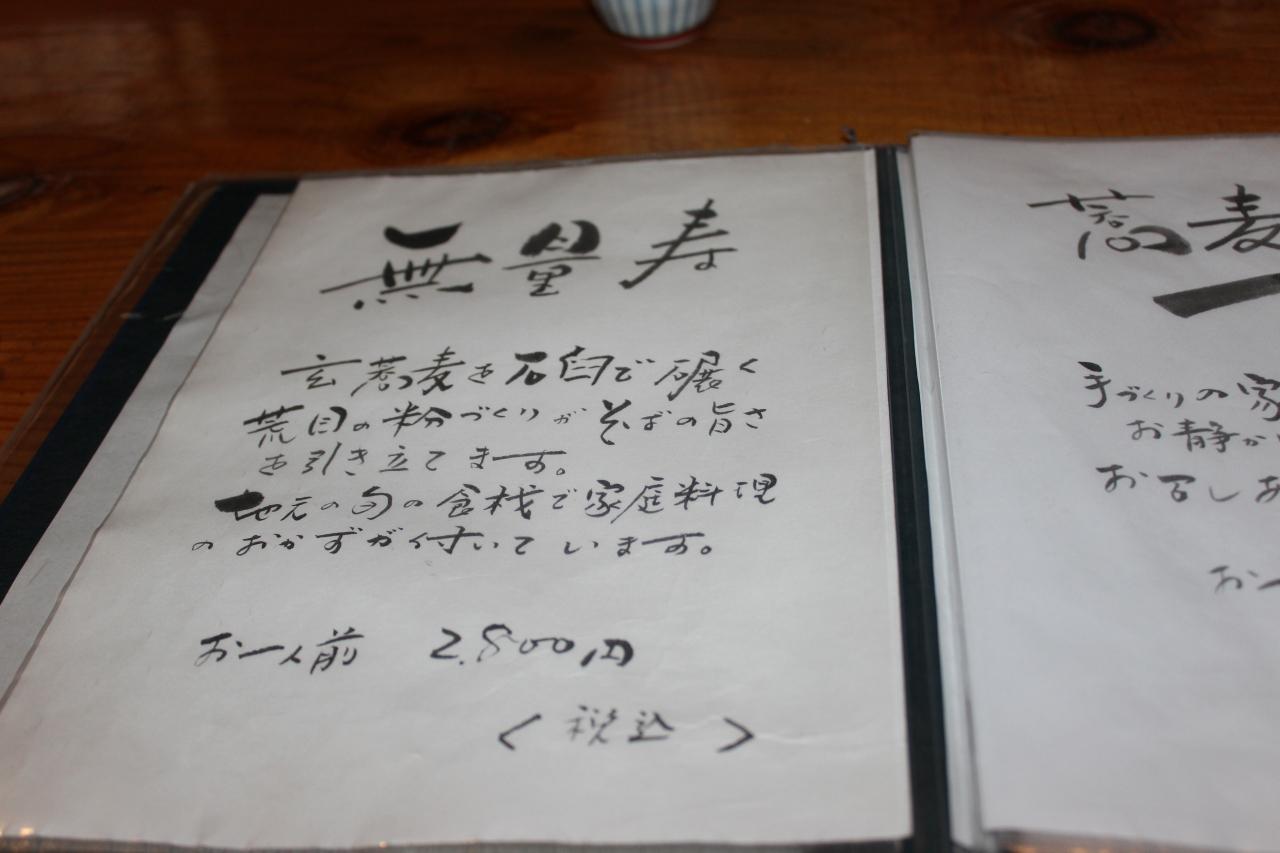 無量寿
玄蕎麦を石臼で碾く
荒目の粉づくりがそばの旨さ
を引き立てます。
地元の旬の食材で家庭料理
のおかずが付いています。
お一人前 2,800円
〈税込〉
蕎麦
一
手づくりの家
お静か
お召しあ
お一